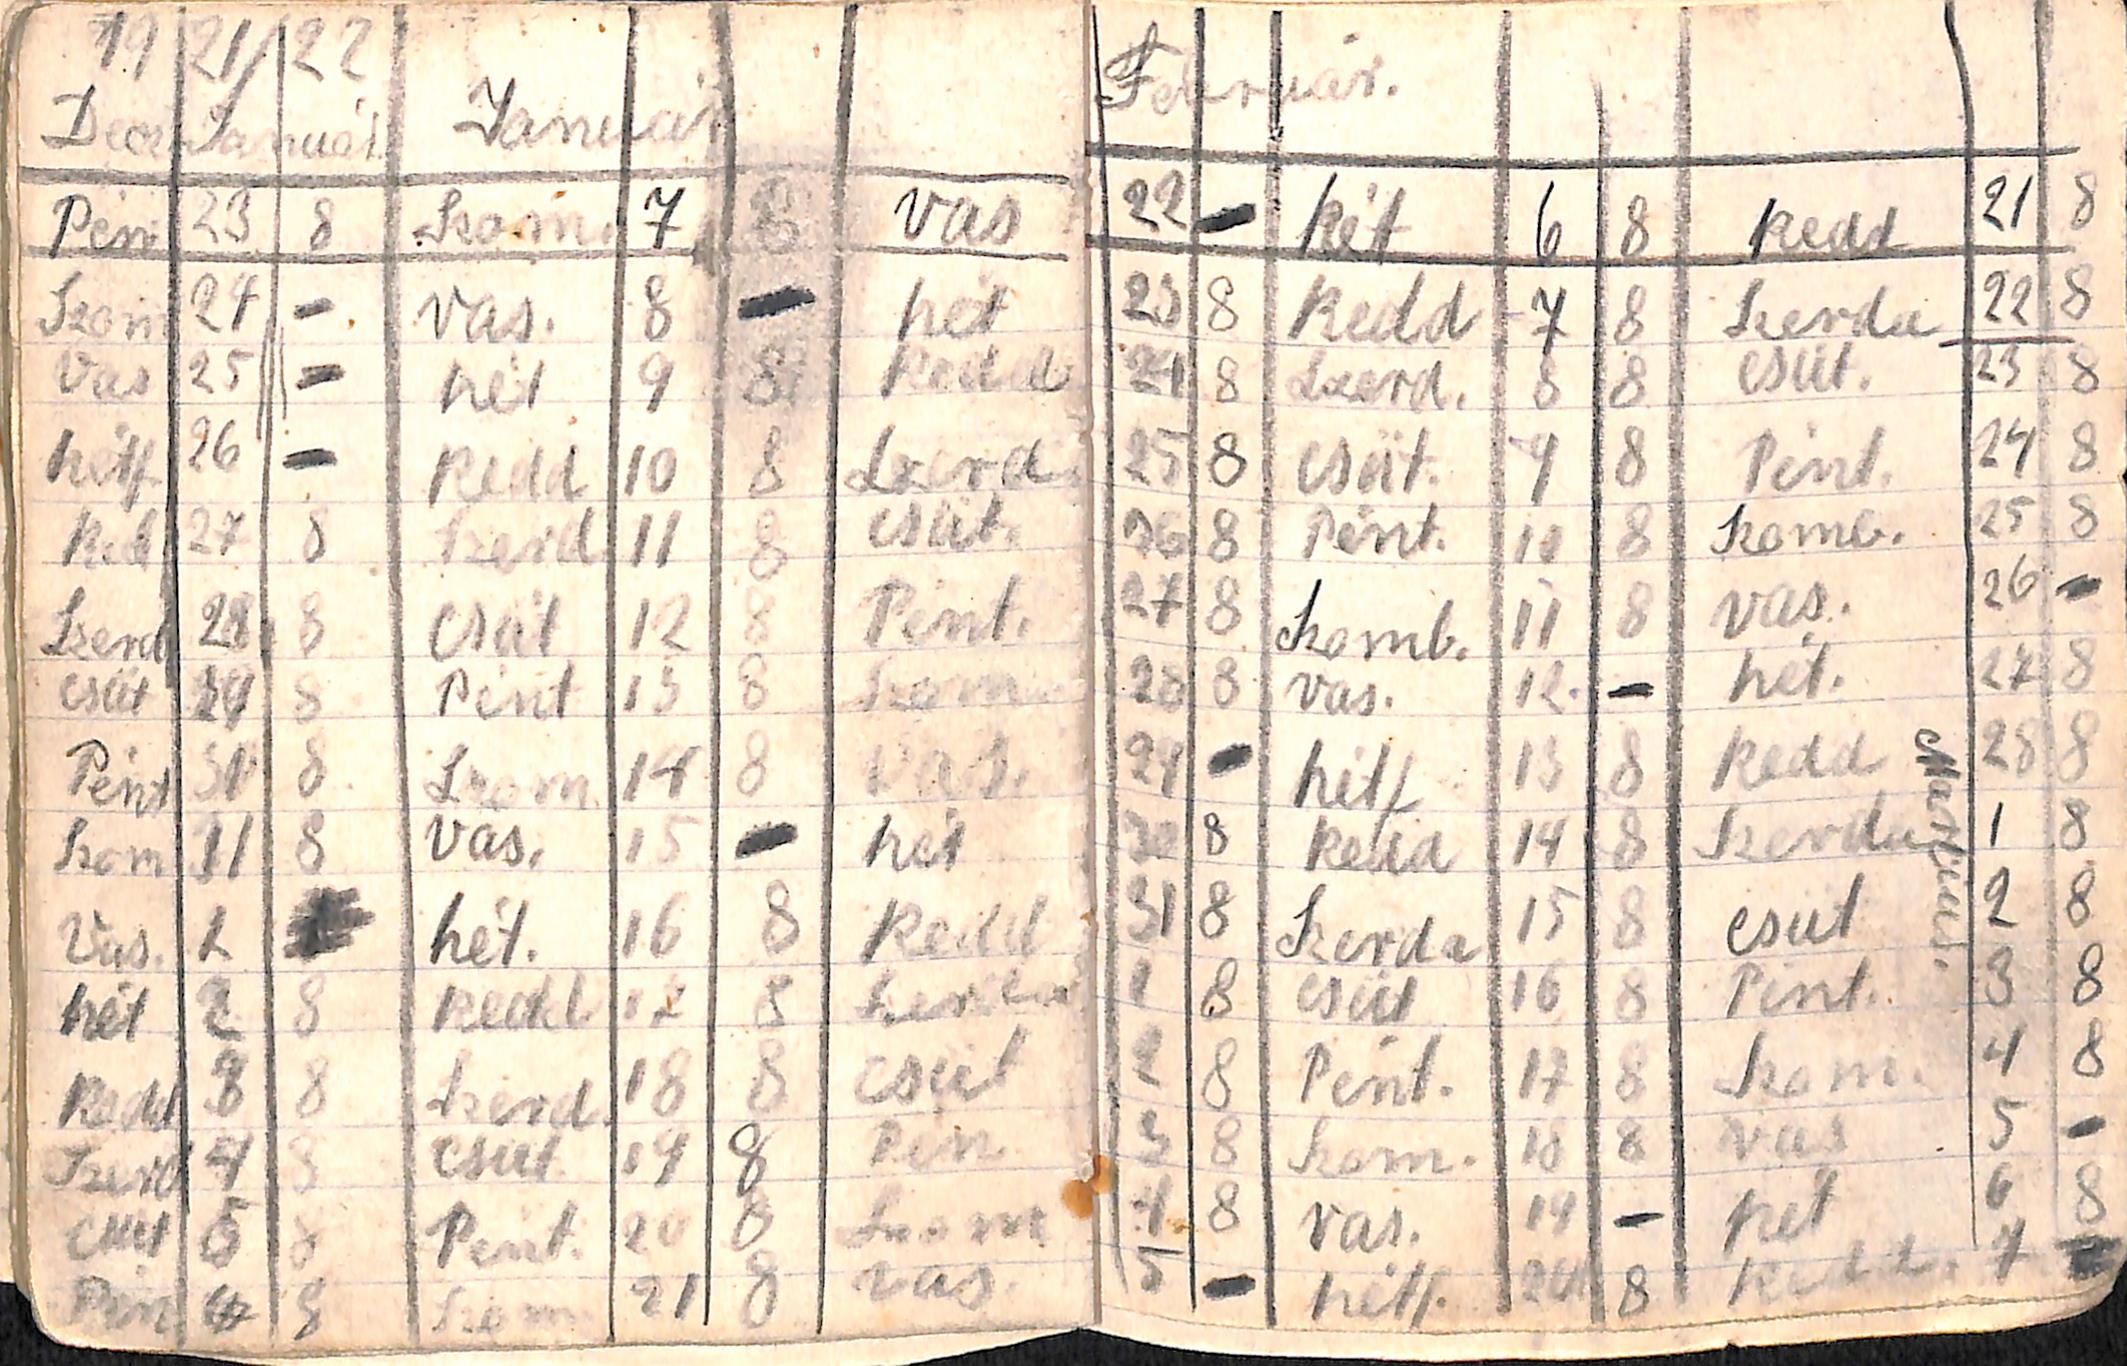 19 21/22
Dec. Január Január Február.
Pén 23 8 Szom. 7 8 vas 22 - hét 6 8 Kedd 21 8
Szom 24 - vas. 8 - hét 23 8 Kedd 7 8 Szerda 22 8
Vas 25 - hét 9 8 Kedd 24 8 Szerd. 8 8 csüt. 23 8
hétf 26 - Kedd 10 8 Szerd. 25 8 csüt. 9 8 Pént. 24 8
Ked 27 8 Szerd 11 8 csüt. 26 8 Pént. 10 8 Szomb. 25 8
Szerd 28 8 csüt 12 8 Pént. 27 8 Szomb. 11 8 vas. 26 -
csüt 29 8 Pént 13 8 Szom. 28 8 vas. 12. - hét. 27 8
Pént 8 Szom 14 8 vas. 29 - hétf 13 8 Kedd 28 8
Március.
Szom 31 8 vas. 15 - hét 30 8 Kedd 14 8 Szerda 1 8
Vas. 1 hét. 16 8 Kedd 31 8 Szerda 15 8 csüt 2 8
hét 2 8 Kedd 17 8 Szerda 1 8 csüt 16 8 Pént. 3 8
Kedd 3 8 Szerd. 18 8 csüt 2 8 Pént. 17 8 Szom. 4 8
Szerd 4 8 csüt 19 8 Pén 3 8 Szom. 18 8 vas 5 -
csüt 5 8 Pént. 20 8 Szom 4 8 vas. 19 - hét 6 8
Pén 6 8 Szom 21 8 vas. 5 - hétf. 20 8 Kedd. 7